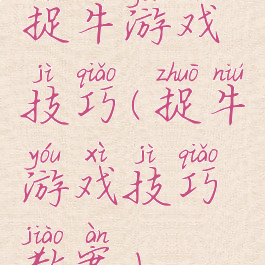 捉牛游戏
jì qiǎo zhuō niú
技巧(捉牛
yóu xì jì qiǎo
游戏技巧
jiào àn
教案)